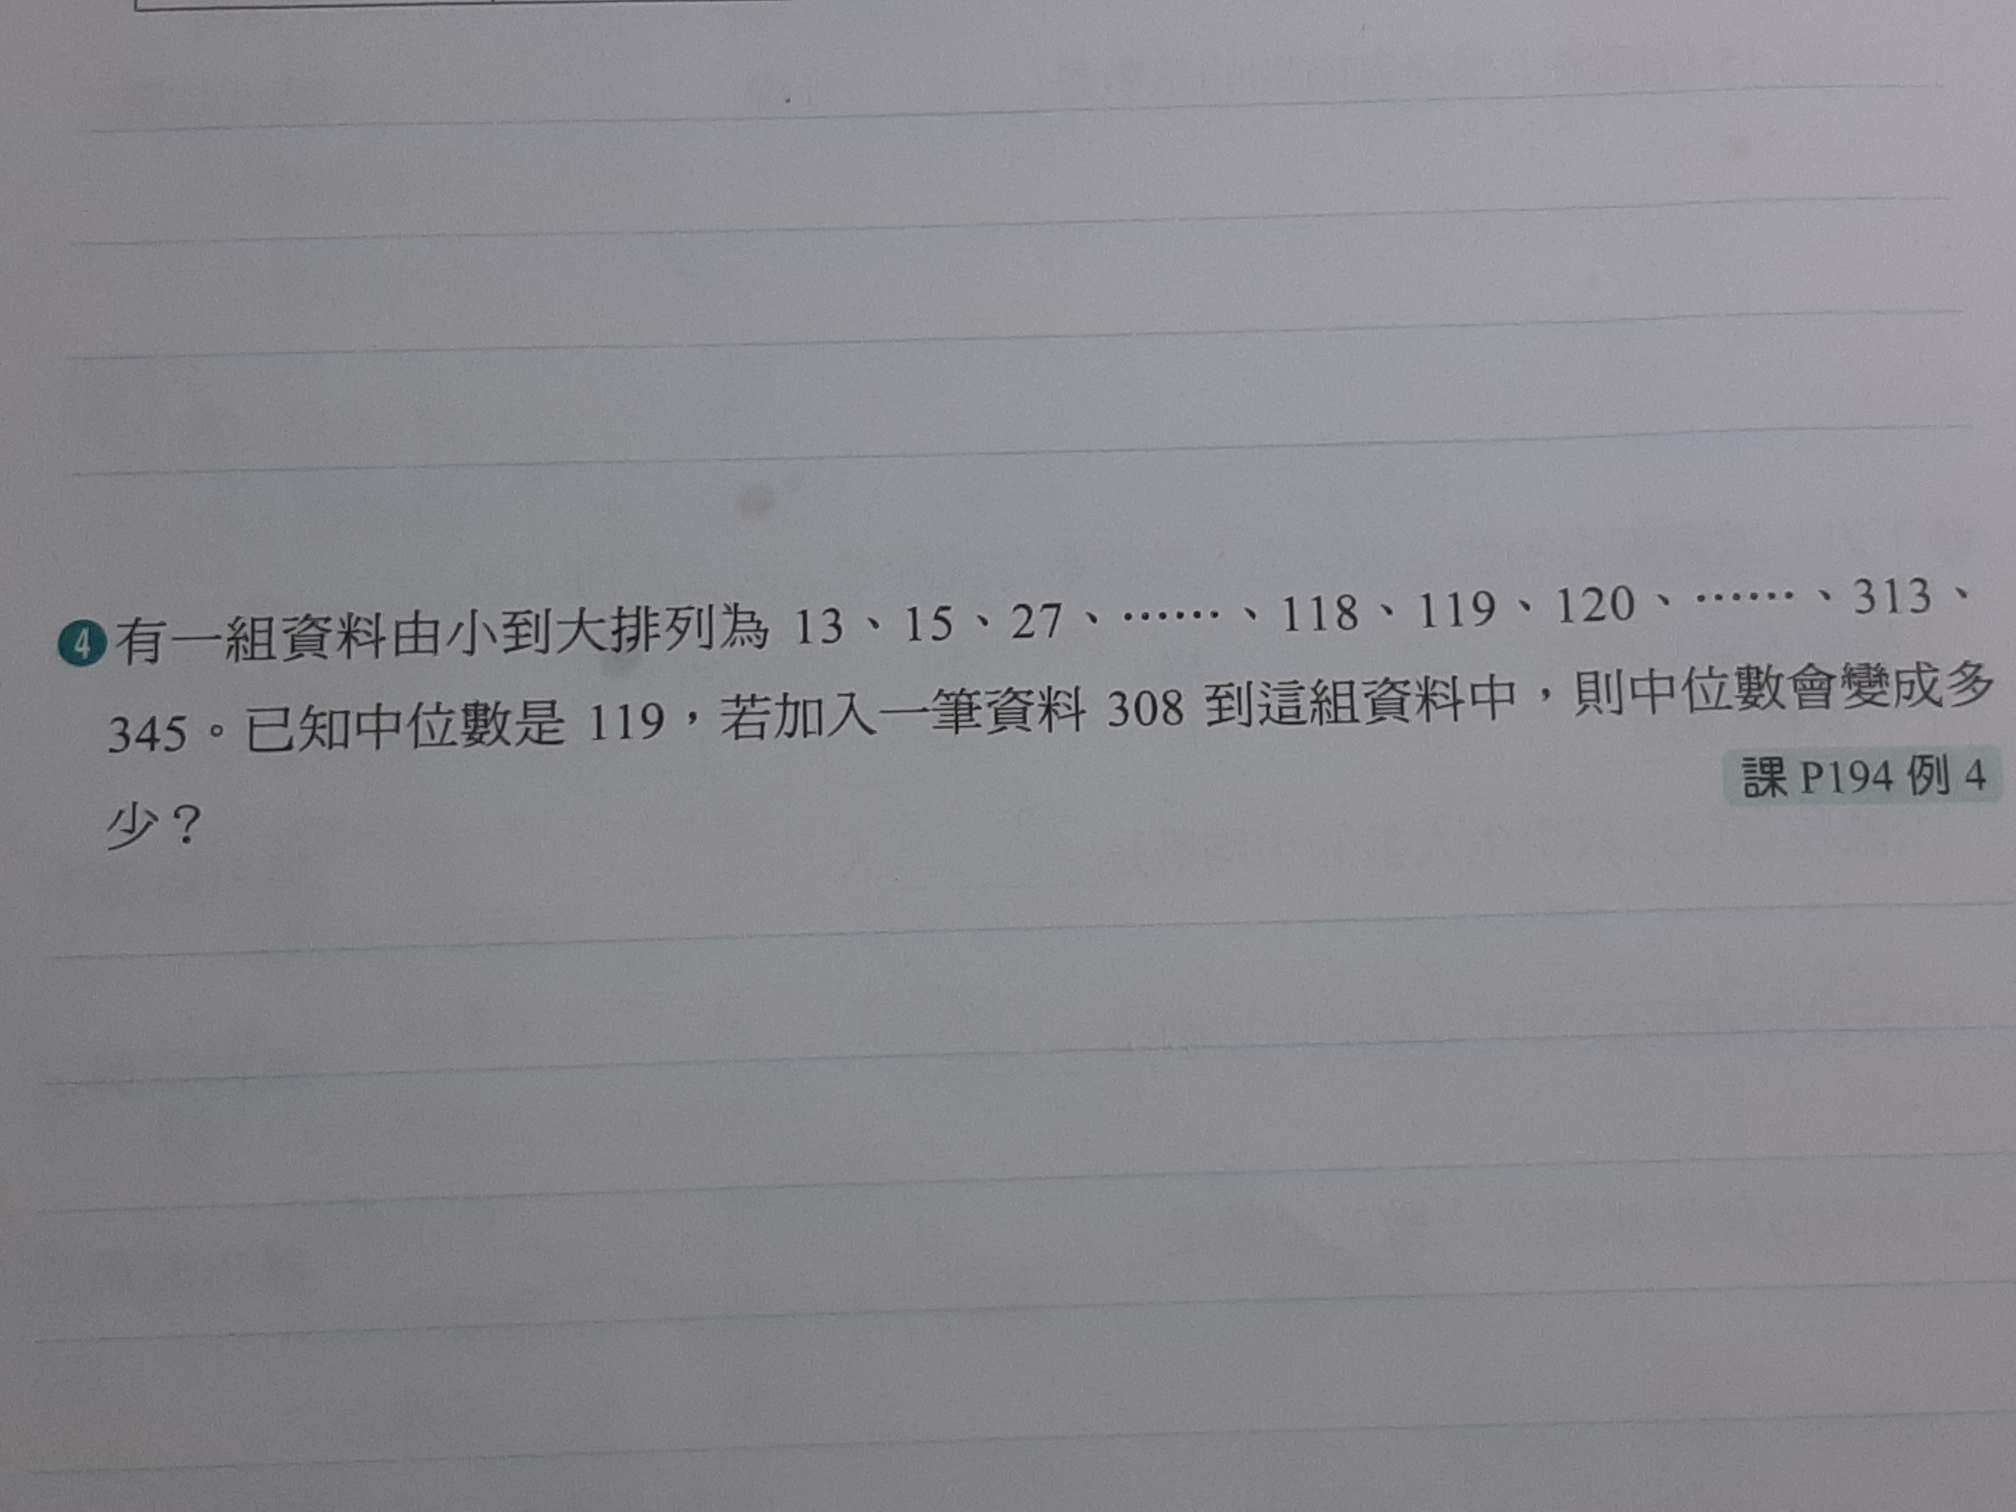 4 有一組資料由小到大排列為 13、15、27、……、118、119、120、……、313、
345。已知中位數是 119,若加入一筆資料 308 到這組資料中,則中位數會變成多
少?
課 P194 例 4